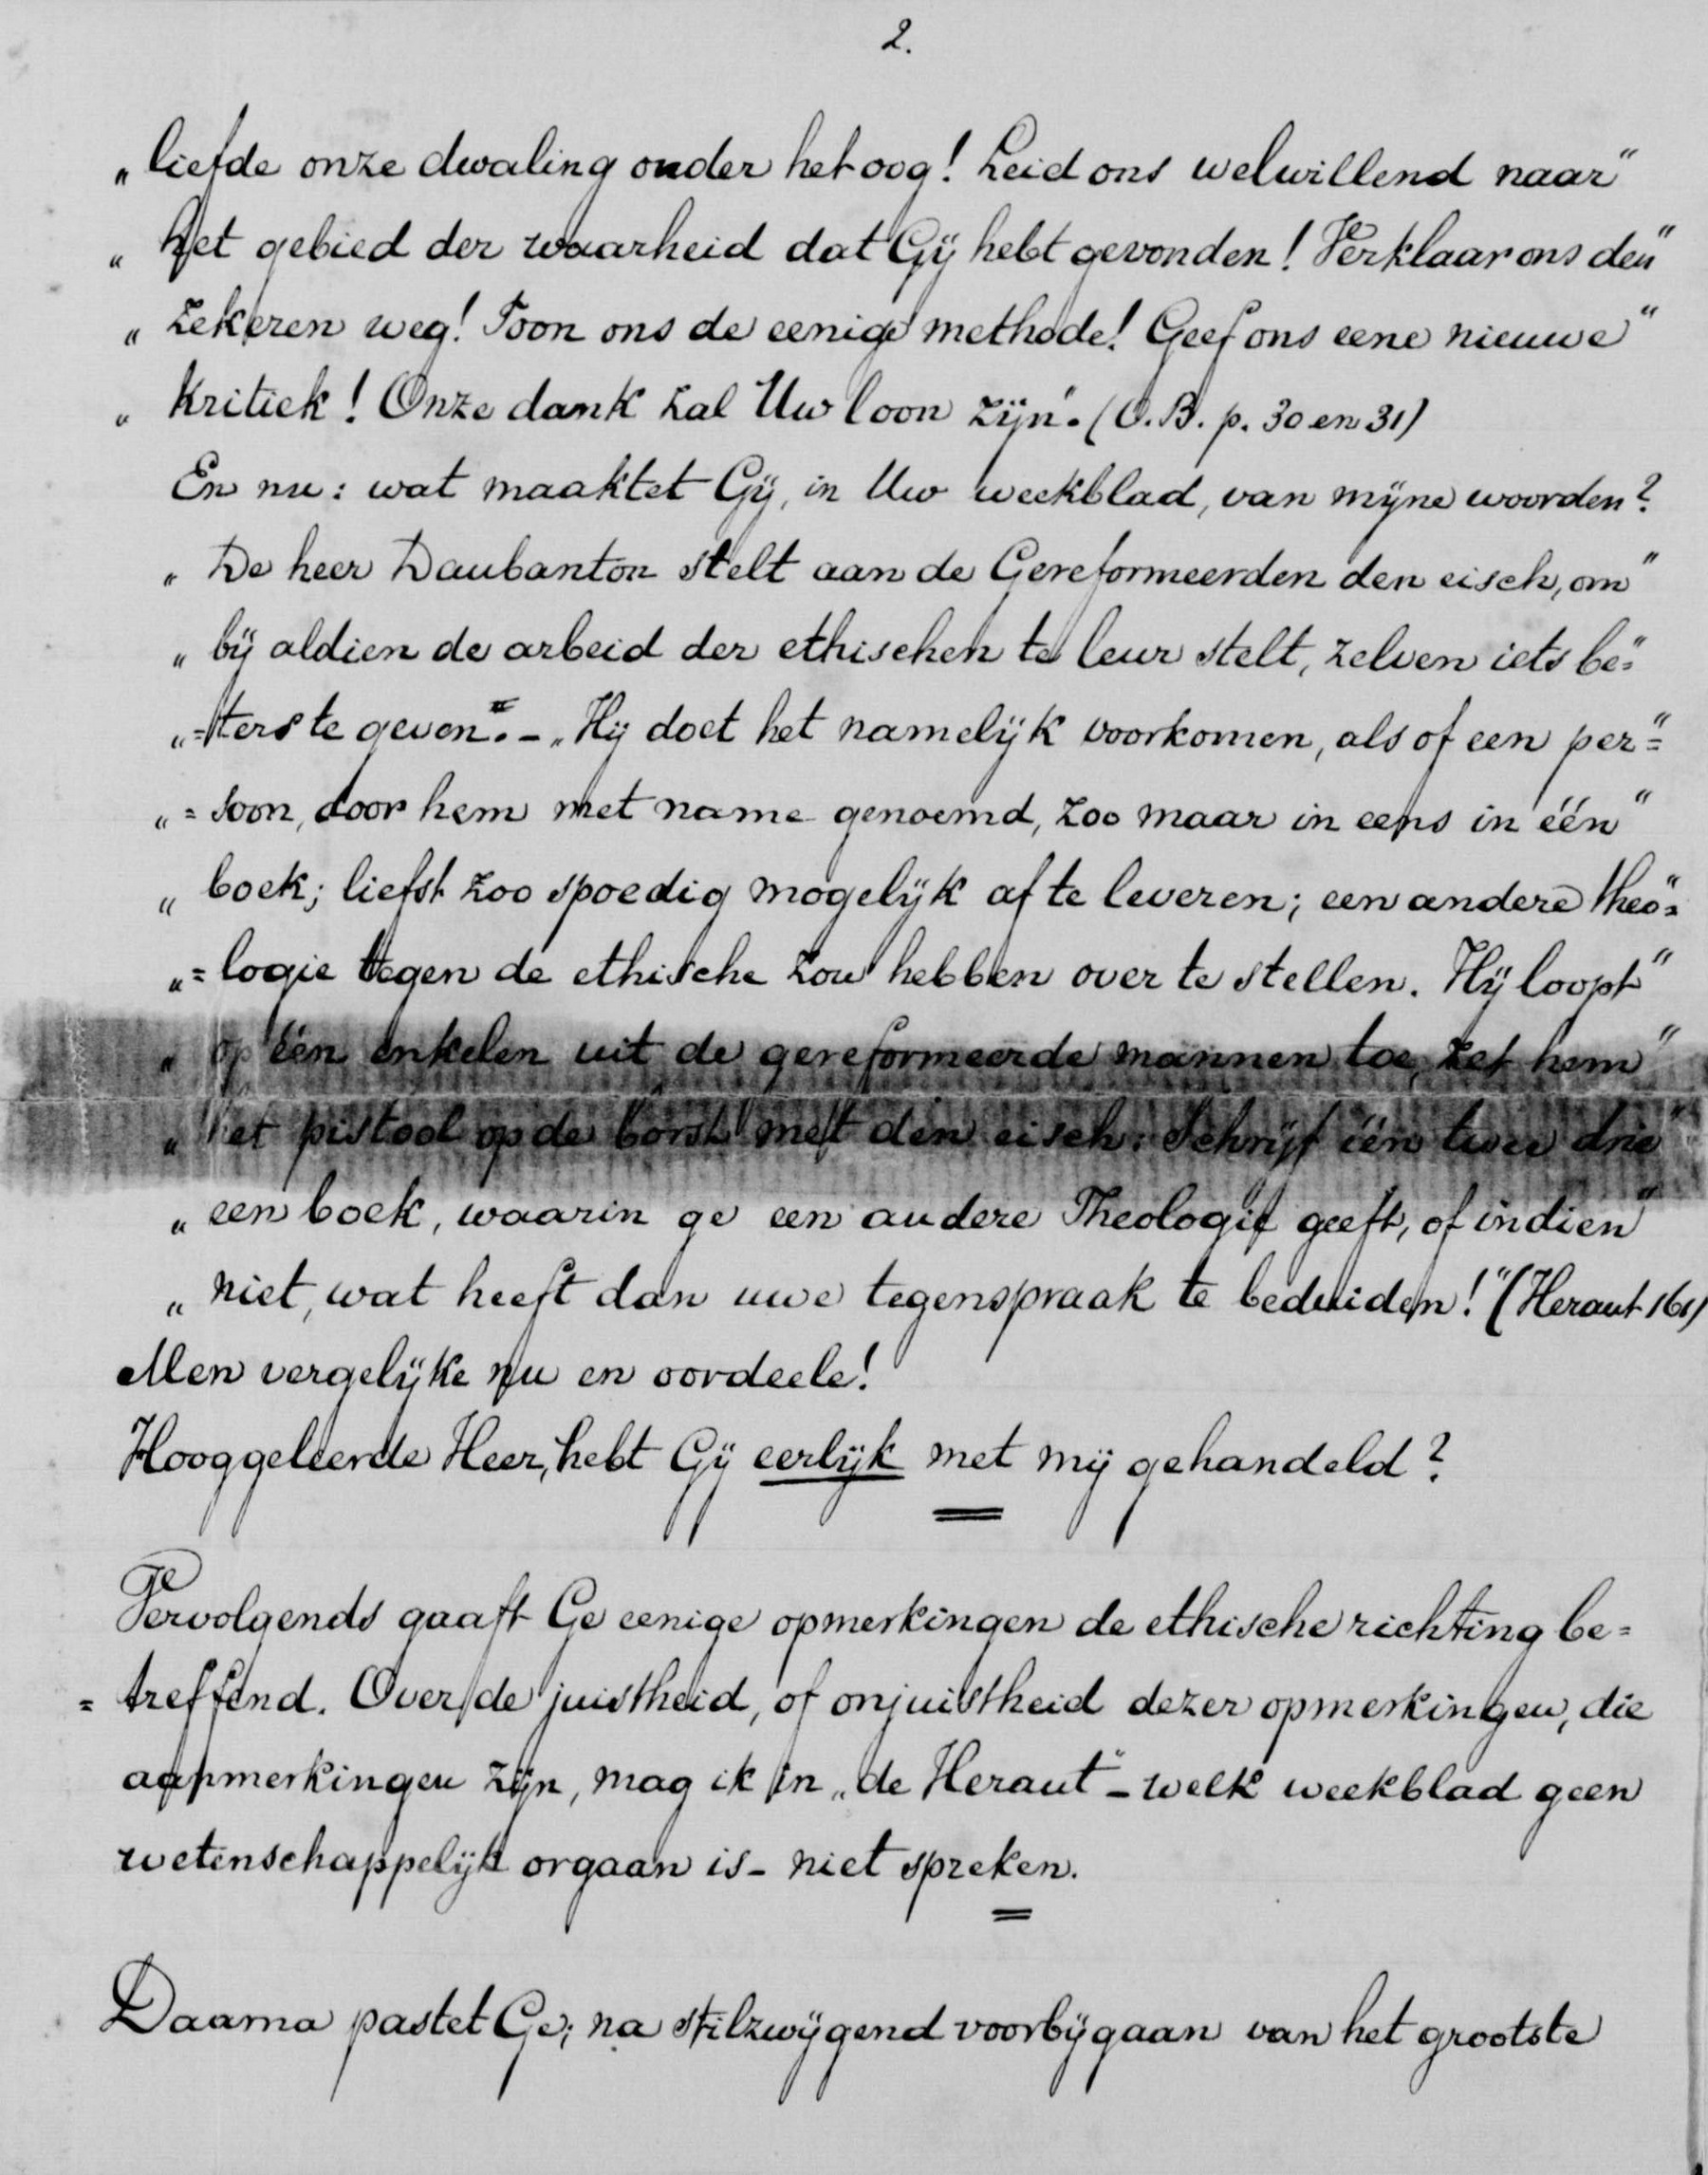 2.
„ liefde onze dwaling onder het oog! Leid ons welwillend naar “
„ het gebied der waarheid dat Gij hebt gevonden! Verklaar ons den “
„ zekeren weg! Toon ons de eenige methode! Geef ons eene nieuwe “
„ kritiek! Onze dank zal Uw loon zijn“. (O.B. p. 30 en 31)
En nu: wat maaktet Gij, in Uw weekblad, van mijne woorden?
„ De heer Daubanton stelt aan de Gereformeerden den eisch, om “
„ bij aldien de arbeid der ethischen te leur stelt, zelven iets be= “
„ =ters te geven“. – „Hij doet het namelijk voorkomen, als of een per= “
„ = soon, door hem met name genoemd, zoo maar in eens in één “
„ boek; liefst zoo spoedig mogelijk af te leveren; een andere theo= “
„ = logie tegen de ethische zou hebben over te stellen. Hij loopt “
„ op één enkelen uit de gereformeerde mannen toe, zet hem “
„ het pistool op de borst met den eisch: Schrijf één twee drie “
„ een boek, waarin ge een andere Theologie geeft, of indien “
„ niet, wat heeft dan uwe tegenspraak te beduiden!“ (Heraut 161)
Men vergelijke nu en oordeele!
Hooggeleerde Heer, hebt Gij eerlijk met mij gehandeld?
Vervolgends gaaft Ge eenige opmerkingen de ethische richting be=
= treffend. Over de juistheid, of onjuistheid dezer opmerkingen, die
aanmerkingen zijn, mag ik in „de Heraut“ – welk weekblad geen
wetenschappelijk orgaan is – niet spreken.
Daarna pastet Ge; na stilzwijgend voorbijgaan van het grootste